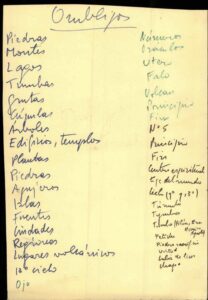 Ombligos
Piedras
Montes
Lagos
Tumbas
Grutas
Cúpulas
Arboles
Edificios, templos
Plantas
Piedras
Agujeros
Islas
Fuentes
Ciudades
Regiones
Lugares volcánicos
10º cielo
Ojo
Números
Oraculos
Utero
Falo
Volcan
Principio
Fin
Nº 5
Principio
Fin
Centro espiritual
Eje del mundo
Túmulo
Tymbos
Piedra